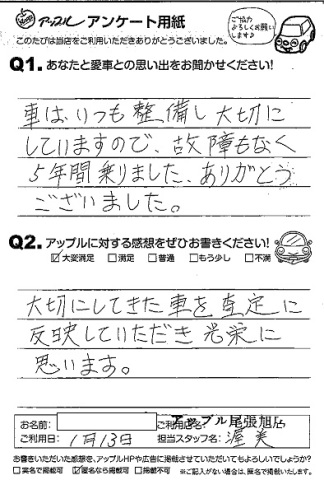 アップル アンケート用紙
このたびは当店をご利用いただきありがとうございました。
ご協力
よろしくお願い
します♪
Q1. あなたと愛車との思い出をお聞かせください!
車はいつも整備し大切に
していますので、故障もなく
5年間乗りました、ありがとう
ございました。
Q2. アップルに対する感想をぜひお書きください!
☑大変満足 □満足 □普通 □もう少し □不満
大切にしてきた車を査定に
反映していただき光栄に
思います。
お名前: ご利用店名: アップル尾張旭店
ご利用日: 1月13日 担当スタッフ名: 渥美
お書きいただいた感想を、アップルHPや広告に掲載させていただいてもよろしいでしょうか?
□実名で掲載可 ☑匿名なら掲載可 □掲載不可 ※ご記入がない場合は、匿名で掲載いたします。